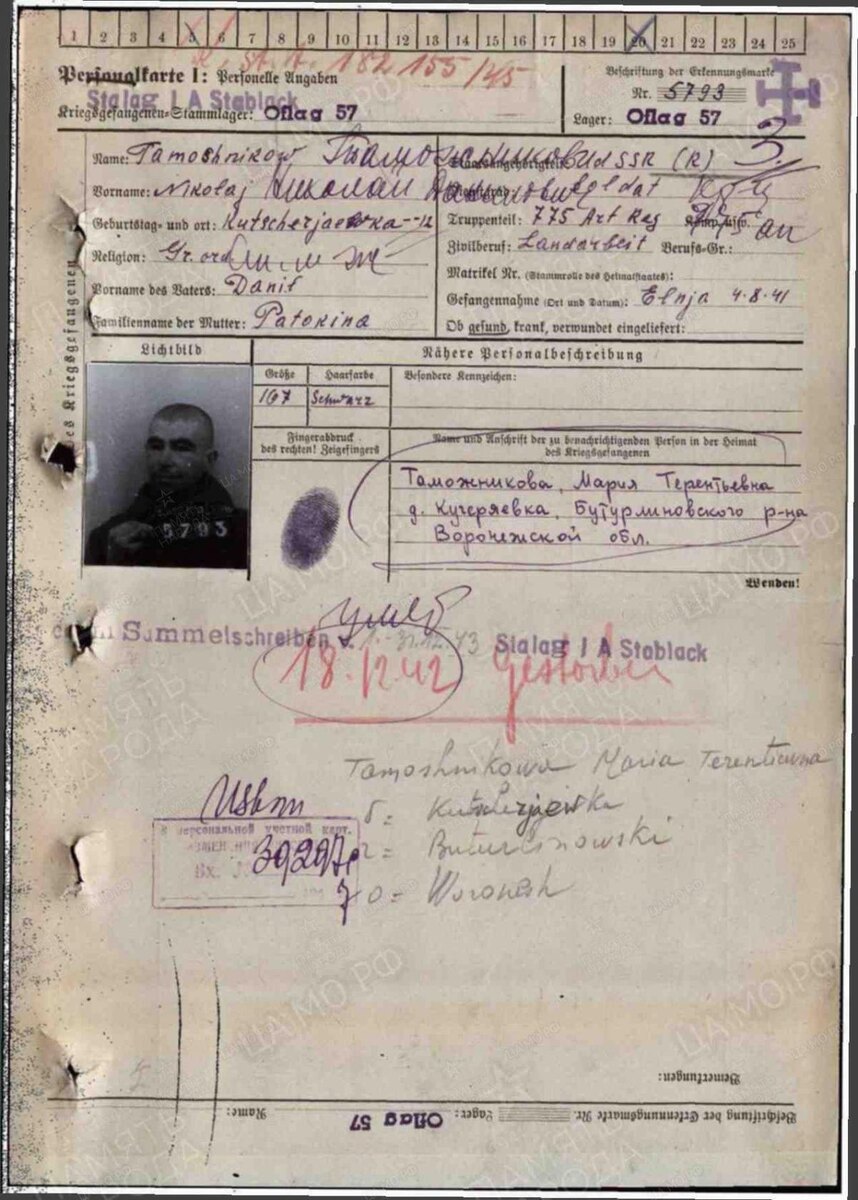 1 2 3 4 5 6 7 8 9 10 11 12 13 14 15 16 17 18 19 20 21 22 23 24 25
182 155/45
Personalkarte I: Personelle Angaben
Beschriftung der Erkennungsmarke
Stalag I A Stablack
Nr. 5793
Kriegsgefangenen-Stammlager: Oflag 57
Lager: Oflag 57
3.
Name: Tamoshnikow Таможников
UdSSR (R)
Vorname: Nikolaj Николай Данилович
Soldat
Geburtstag- und ort: Kutscherjaewka
Truppenteil: 775 Art Reg
Religion: Gr. ord
Zivilberuf: Landarbeit Berufs-Gr.:
Matrikel Nr. (Stammrolle des Heimatstaates):
Vorname des Vaters: Danil
Gefangennahme (Ort und Datum): Elnja 4.8.41
Familienname der Mutter: Patokina
Ob gesund, krank, verwundet eingeliefert:
des Kriegsgefangenen
Lichtbild
Nähere Personalbeschreibung
Größe Haarfarbe Besondere Kennzeichen:
167 Schwarz
Fingerabdruck
des rechten! Zeigefingers
Name und Anschrift der zu benachrichtigenden Person in der Heimat
des Kriegsgefangenen
Таможникова, Мария Терентьевна
д. Кучеряевка, Бутурлиновского р-на
Воронежской обл.
5793
Wenden!
умер
Sammelschreiben 1.-31.12.43 Stalag I A Stablack
18.12.42 Gestorben
Tamoshnikowa Maria Terentiewna
Kutscherjaewka
Buturlinowski
o = Woronesh
в персональной учетной карт.
Вх. 39297
Bemerkungen:
Beschriftung der Erkennungsmarke Nr. Lager: Oflag 57 Name:
ЦАМО.РФ
ПАМЯТЬ РОДА